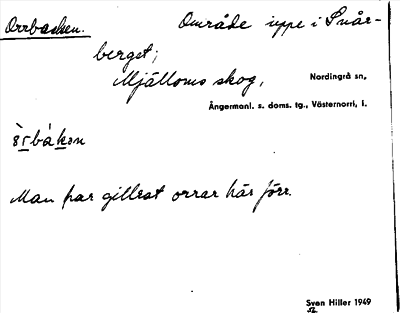 Orrbacken. Område uppe i Snår-
berget;
Mjälloms skog, Nordingrå sn,
Ångermanl. s. doms. tg., Västernorrl. l.
Man har gillrat orrar här förr.
Sven Hiller 1949